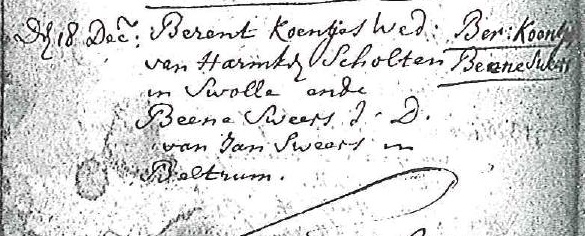 Dń 18 Dec: Berent Koentjes Wed: Ber: Koontj
van Harmken Scholten Beene Sweer
in Swolle ende
Beene Sweers J. D.
van Jan Sweers in
Beltrum.